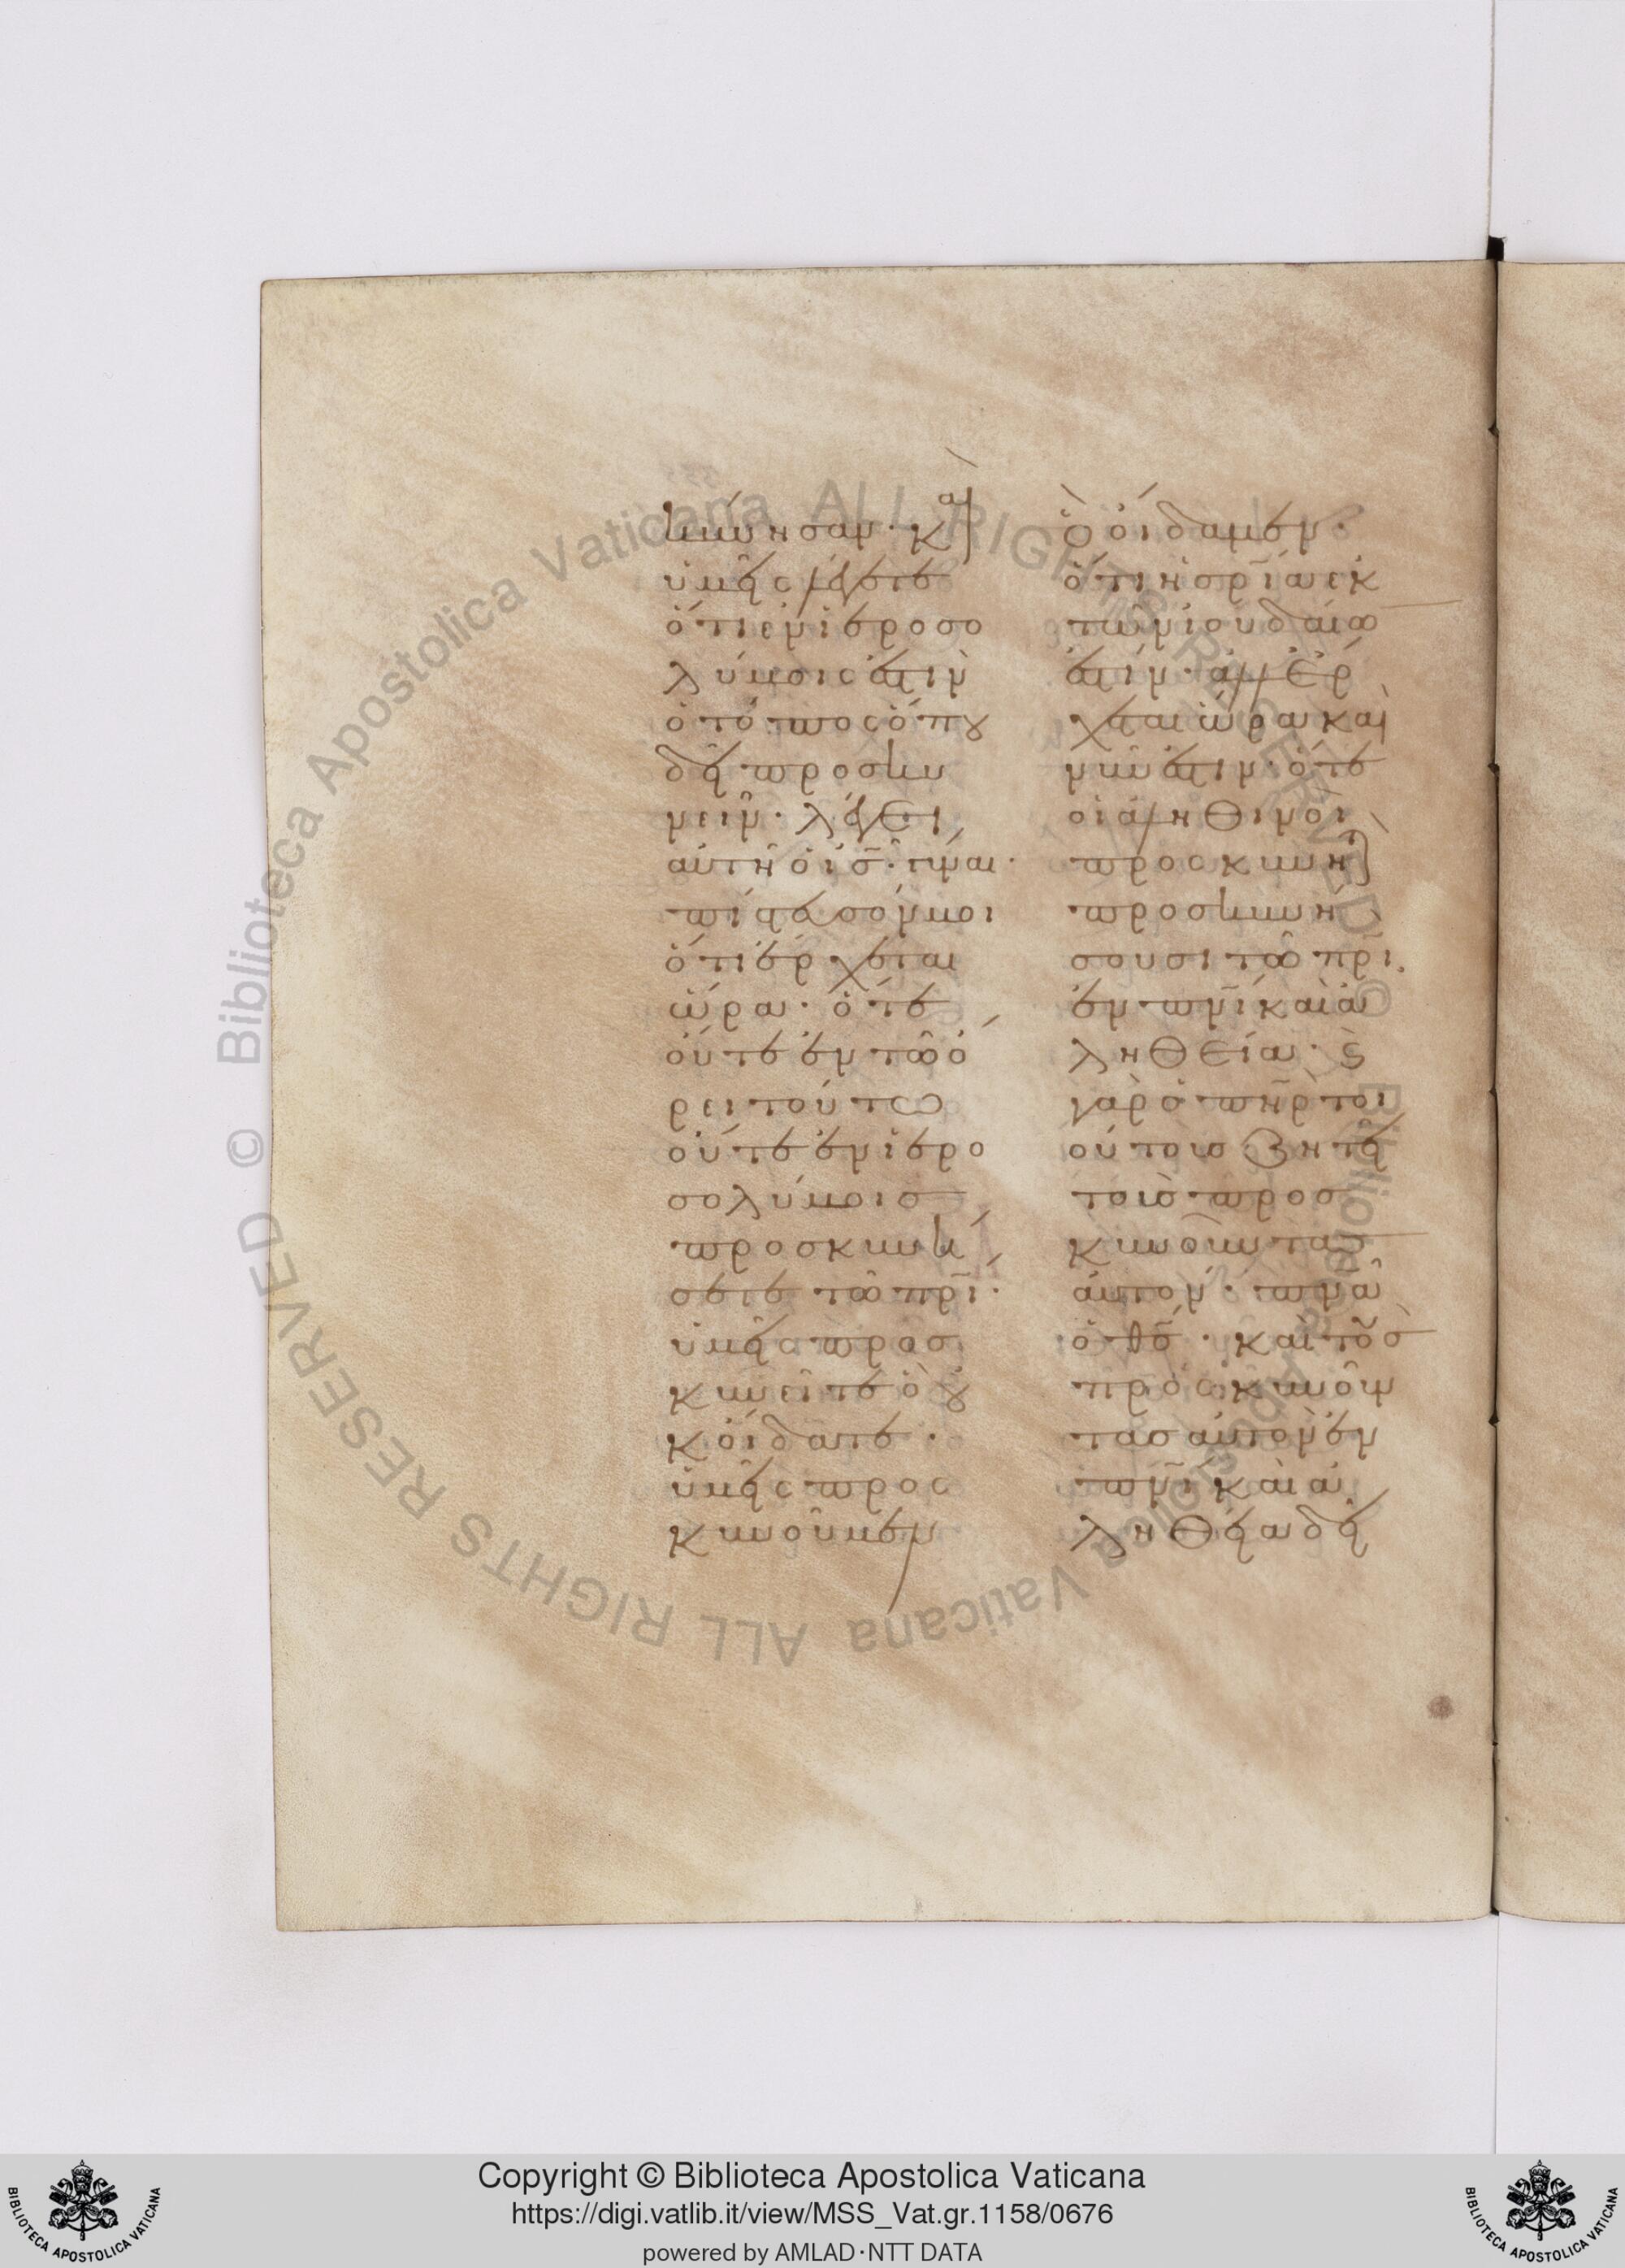 κύνησαν· καὶ
ὑμεῖς λέγετε
ὅτι ἐν ἱεροσο
λύμοις ἐστὶν
ὁ τόπος ὅπου
δεῖ προσκυ
νεῖν· λέγει
αὐτῆ ὁ ις̄· γύναι·
πίστευσόν μοι
ὅτι ἔρχεται
ὥρα· ὅτε
οὔτε ἐν τῶ ὄ
ρει τούτω
οὔτε ἐν ἱερο
σολύμοις
προσκυνή
σετε τῶ πρῑ·
ὑμεῖς προσ
κυνεῖτε ὃ οὐ
κ οἴδατε·
ἡμεῖς προσ
κυνοῦμεν
ὃ οἴδαμεν·
ὅτι ἡ σρῑα ἐκ
τῶν ἰουδαίω
ἐστίν· ἀλλ' ἔρ
χεται ὥρα καὶ
νῦν ἐστιν· ὅτε
οἱ ἀληθινοὶ
προσκυνητ
προσκυνή
σουσι τῶ πρῑ
ἐν πνῑ καὶ ἀ
ληθεία· καὶ
γὰρ ὁ πηρ̄ τοι
ούτους ζητεῖ
τοὺς προσ
κυνοῦντας
αὐτόν· πνᾱ
ὁ θς̄· καὶ τοὺς
προσκυνοῦν
τας αὐτὸν ἐν
πνῑ καὶ ἀ
ληθεία δεῖ
Copyright © Biblioteca Apostolica Vaticana
https://digi.vatlib.it/view/MSS_Vat.gr.1158/0676
powered by AMLAD·NTT DATA
BIBLIOTECA APOSTOLICA VATICANA
BIBLIOTECA APOSTOLICA VATICANA
© Biblioteca Apostolica Vaticana ALL RIGHTS RESERVED © Biblioteca Apostolica Vaticana ALL RIGHTS RESERVED